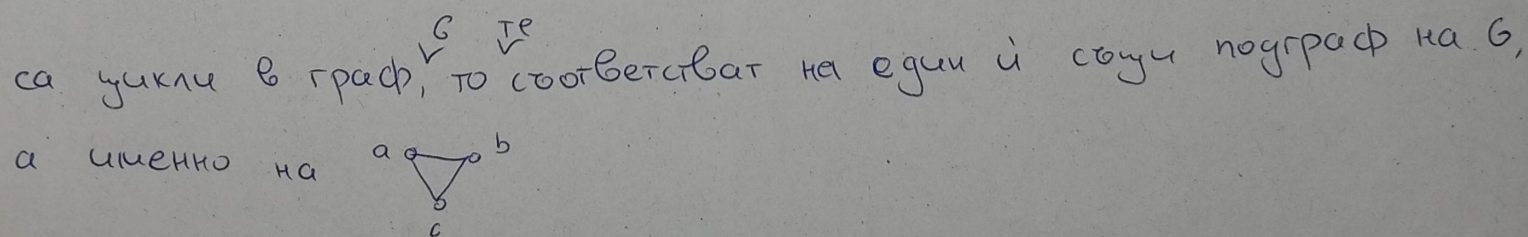 са цикли в граф G, то те съответстват на един и същи подграф на G,
а именно на a b
c